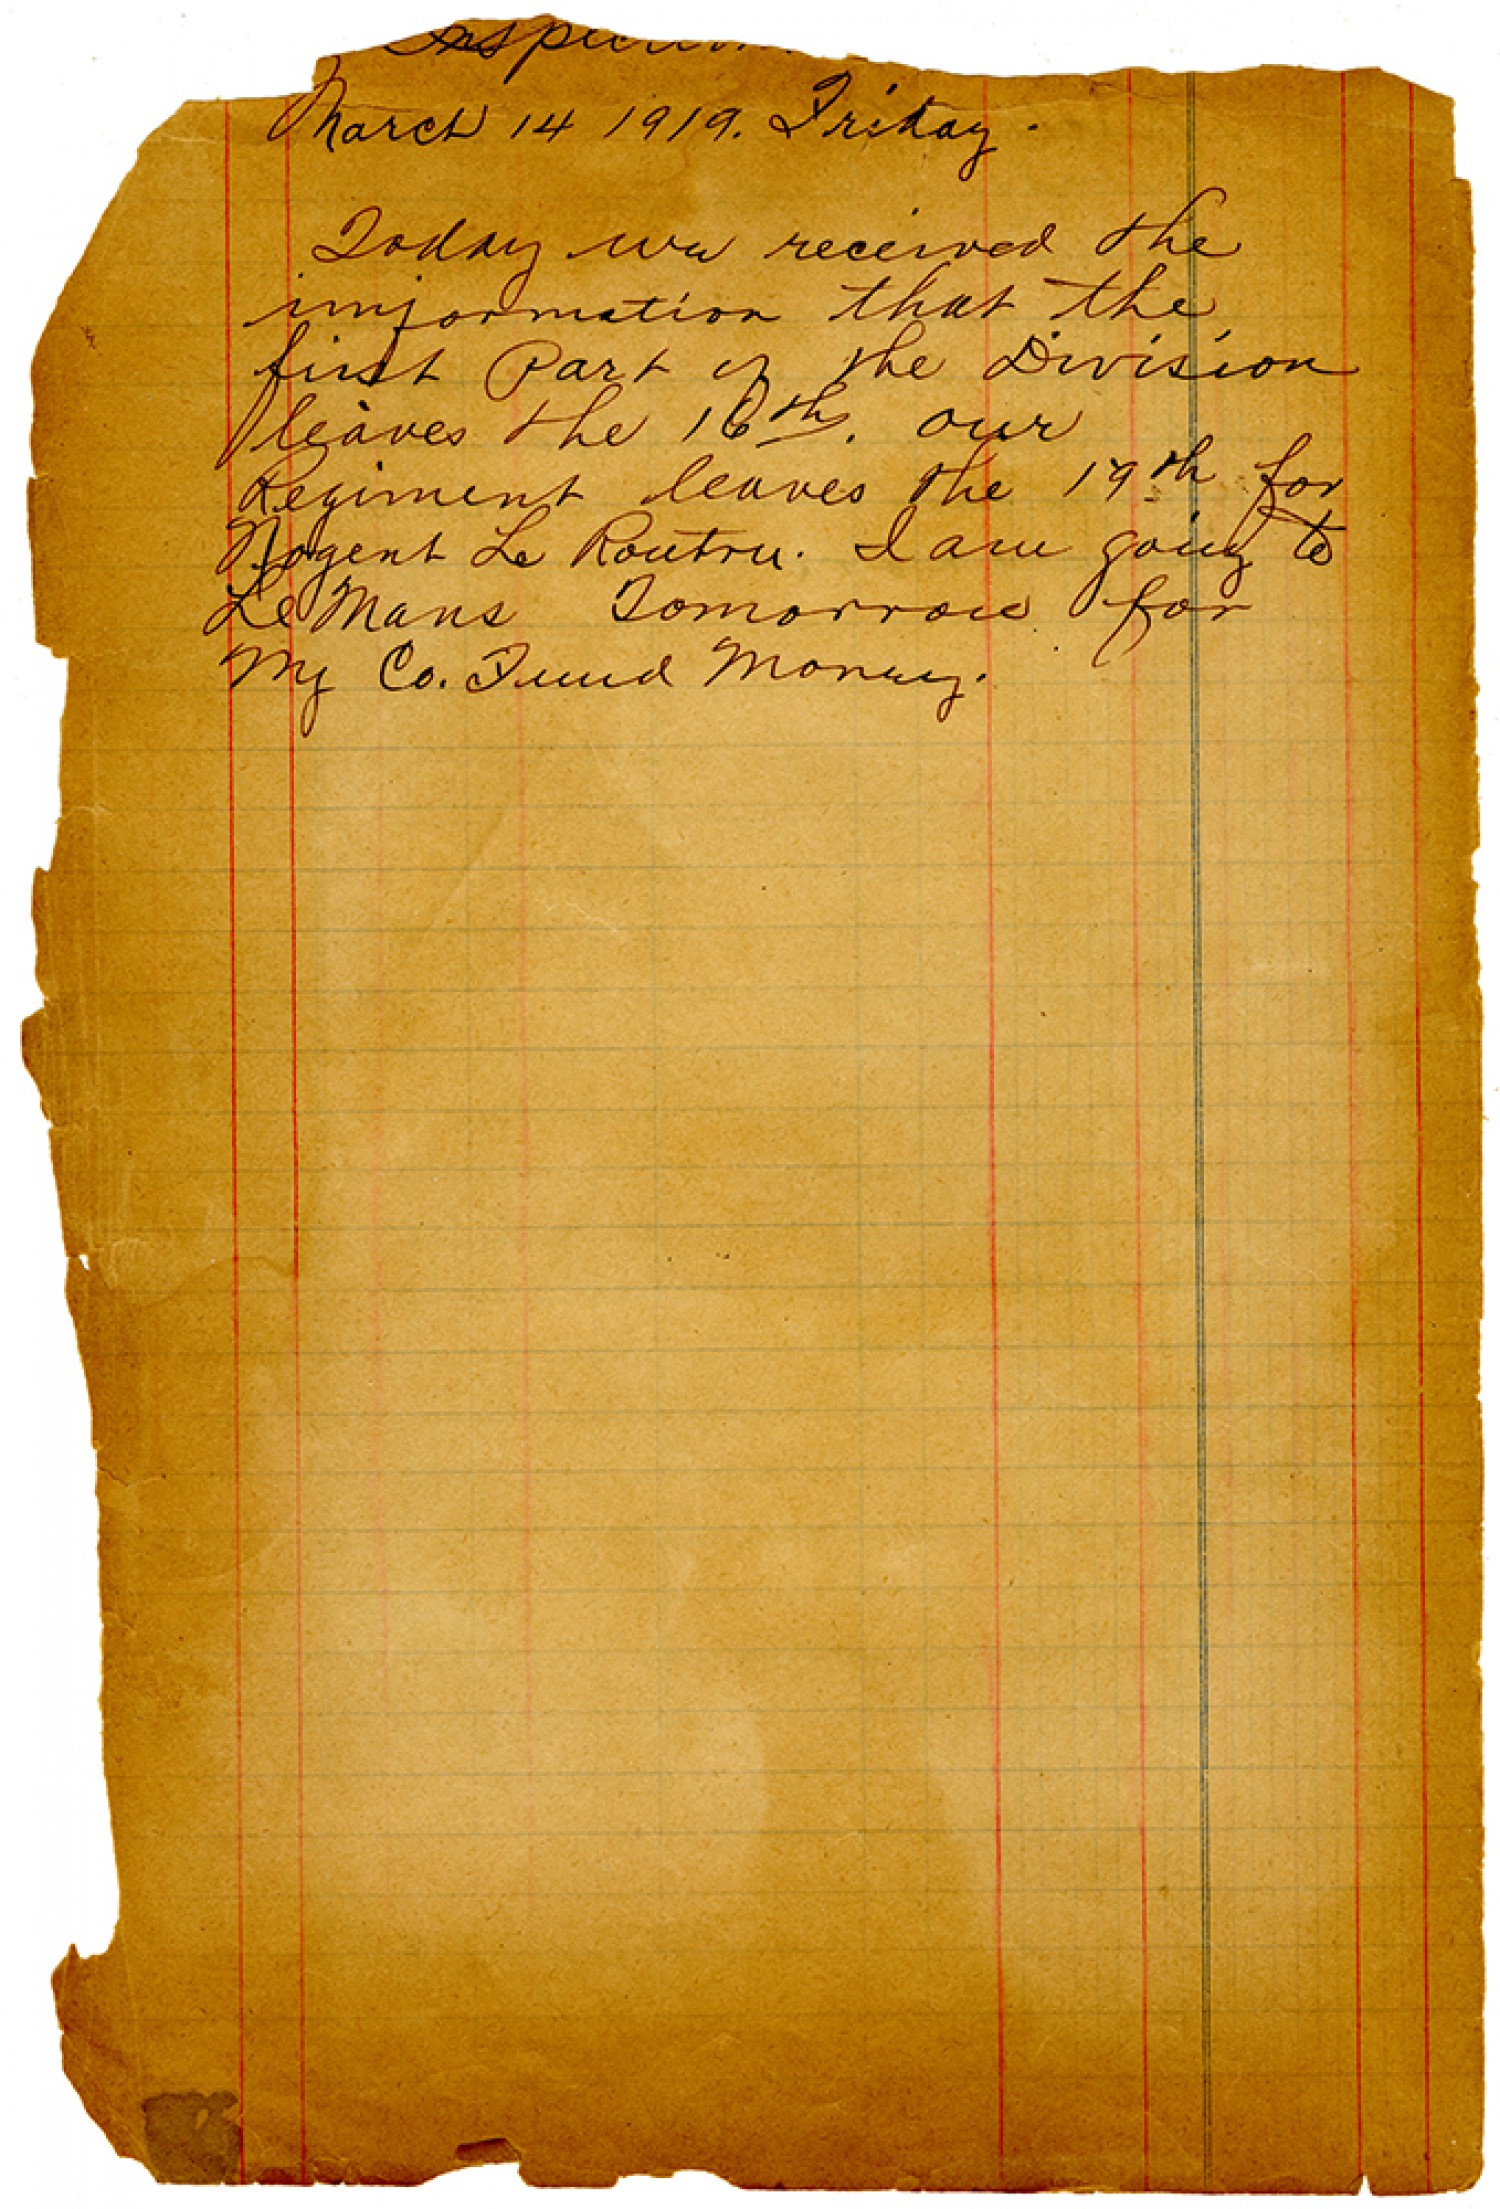 Inspection.
March 14 1919. Friday.
Today we received the
information that the
first Part of the Division
leaves the 16th. our
Regiment leaves the 17th for
Nogent Le Routru. I am going to
Le Mans Tomorrow for
My Co. Fund Money.